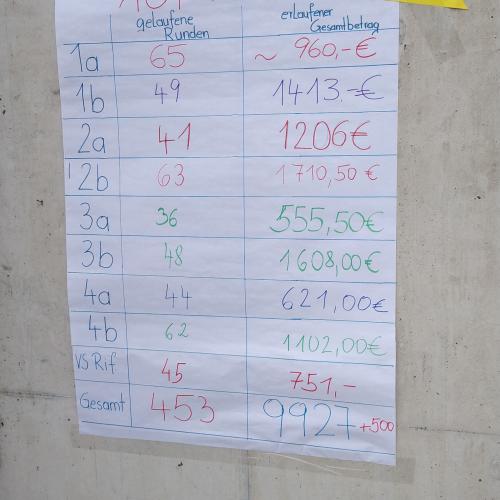 gelaufene Runden erlaufener Gesamtbetrag
1a 65 ~ 960,-€
1b 49 1413.-€
2a 41 1206€
2b 63 1710,50€
3a 36 555,50€
3b 48 1608,00€
4a 44 621,00€
4b 62 1102,00€
VS Rif 45 751,-
Gesamt 453 9927 +500